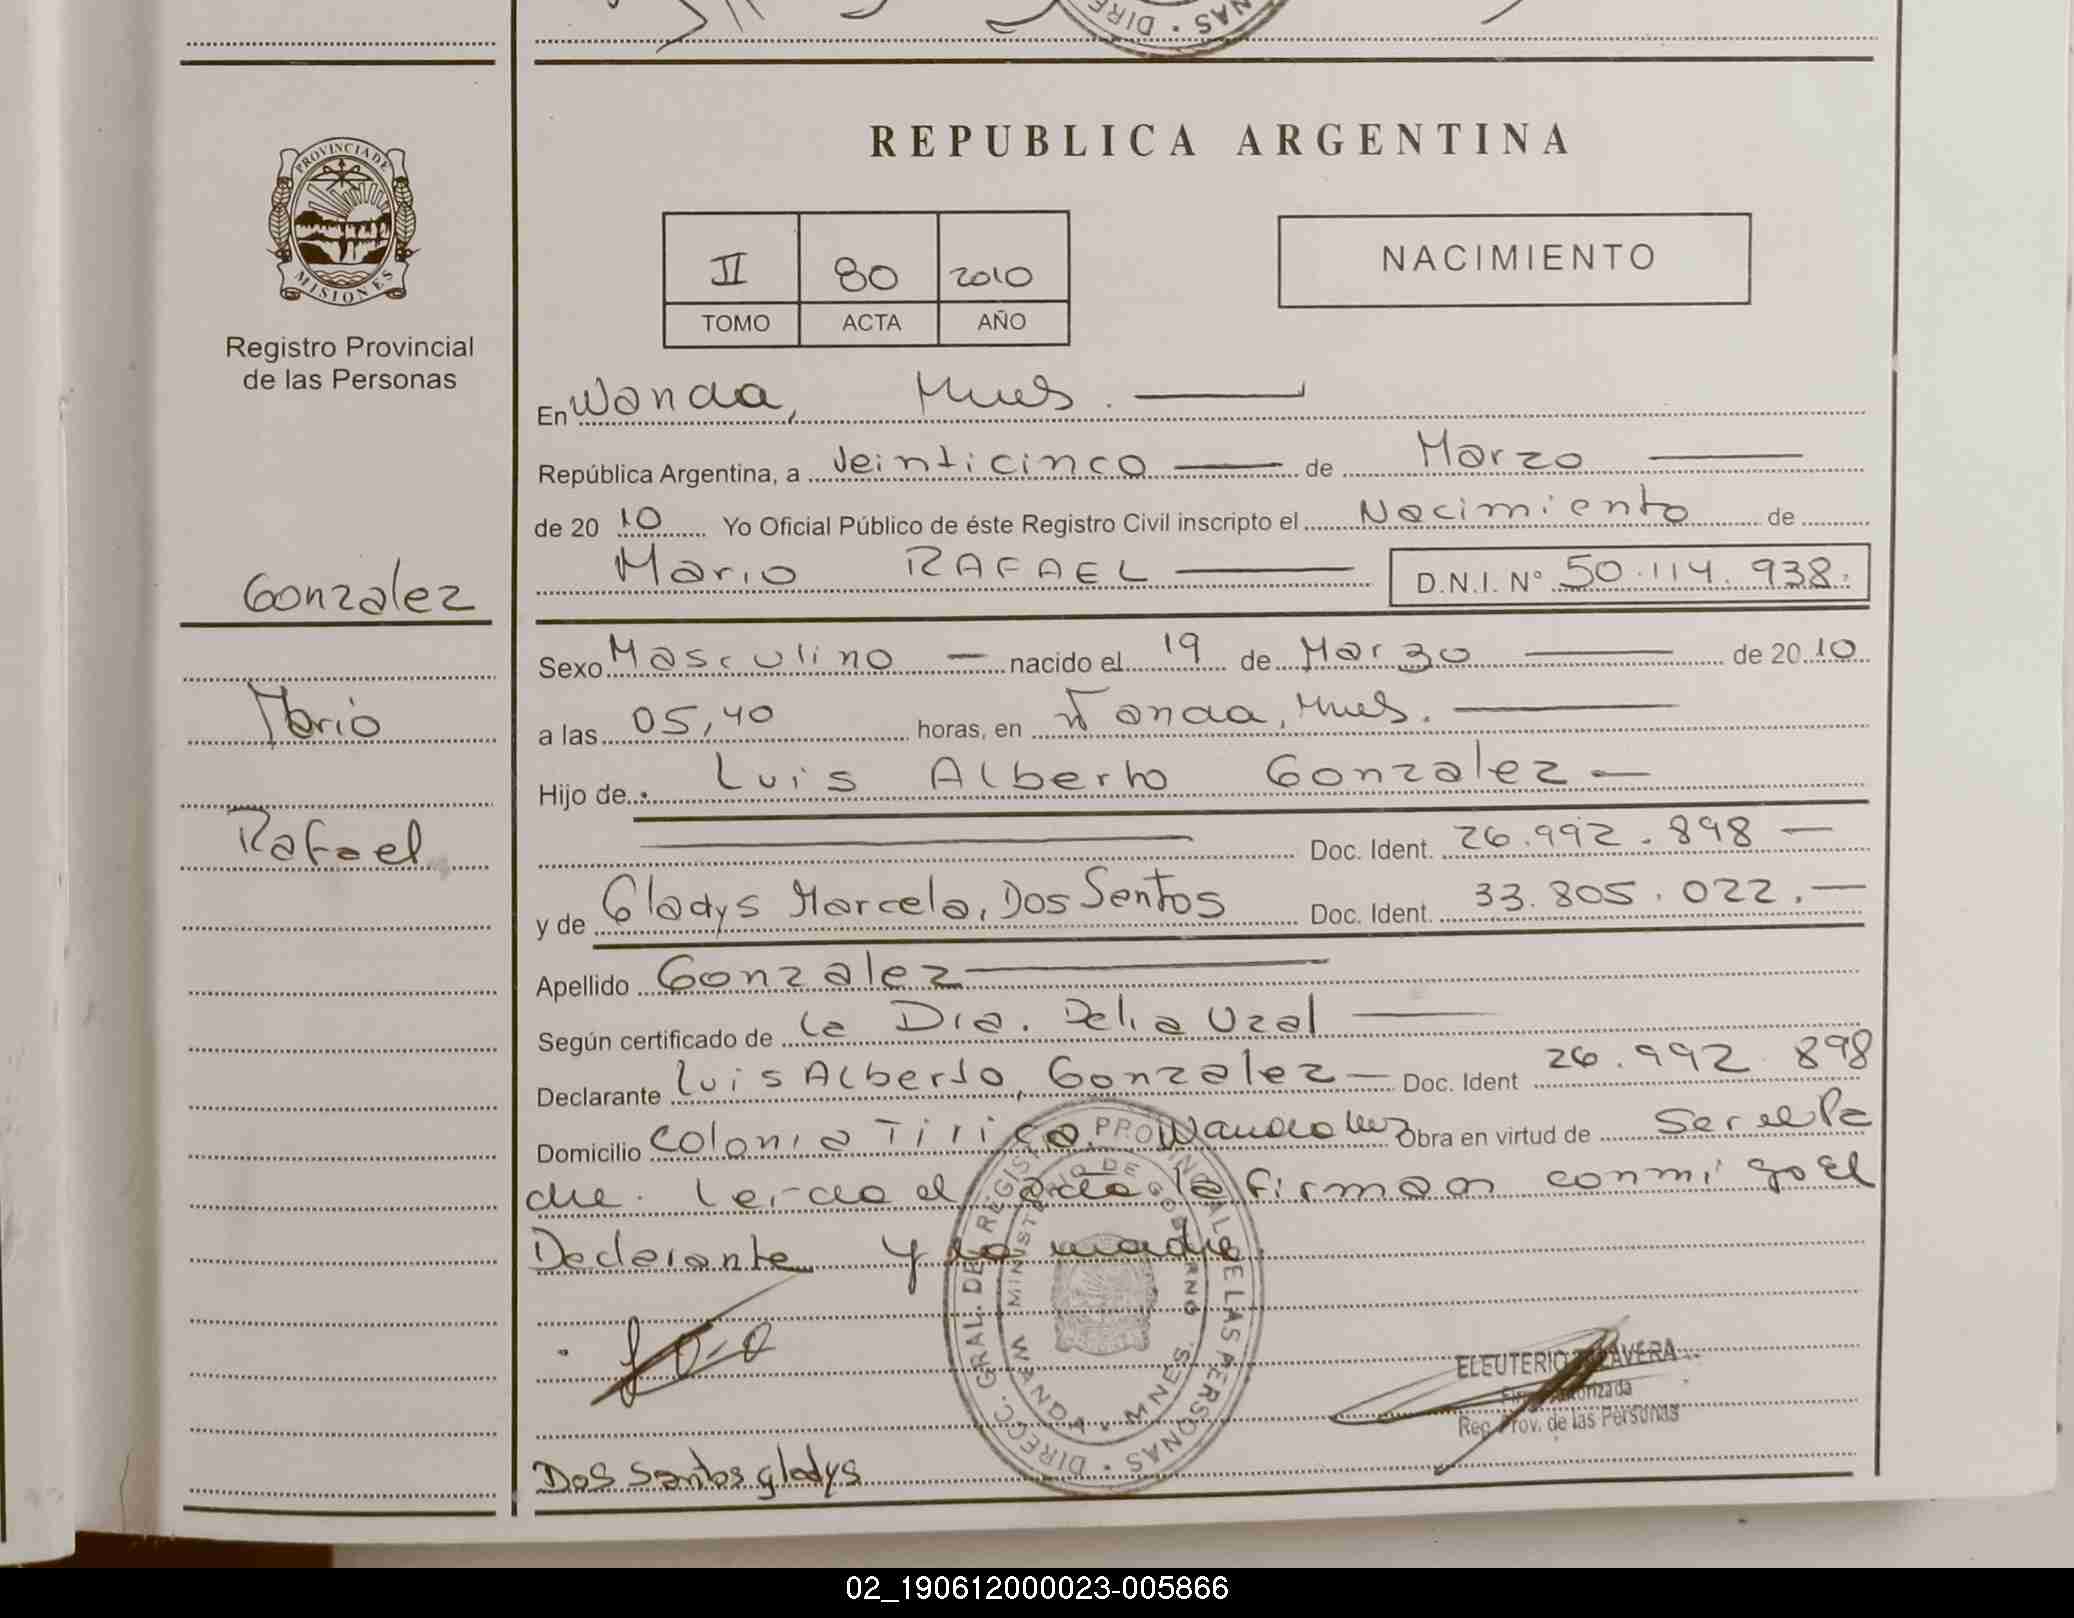 DIRE
NAS
REPUBLICA ARGENTINA
PROVINCIA DE
MISIONES
Registro Provincial
de las Personas
II 80 2010
TOMO ACTA AÑO
NACIMIENTO
En Wanda, Mnes.
República Argentina, a Veinticinco de Marzo
de 20 10 Yo Oficial Público de éste Registro Civil inscripto el Nacimiento de
Mario RAFAEL D.N.I. Nº 50.114.938.
Gonzalez
Sexo Masculino nacido el 19 de Marzo de 20 10
Mario
a las 05,40 horas, en Wanda, Mnes.
Hijo de Luis Alberto Gonzalez
Rafael
Doc. Ident. 26.992.898
y de Gladys Marcela, Dos Santos Doc. Ident. 33.805.022.
Apellido Gonzalez
Según certificado de la Dra. Delia Uzal
Declarante Luis Alberto, Gonzalez Doc. Ident 26.992.898
Domicilio Colonia Tirica, Wanda Mnes Obra en virtud de Ser el Pa
dre. Leida el acta la firman conmigo El
Declarante y la madre.
DIRECC. GRAL. DE REGISTRO PROVINCIAL DE LAS PERSONAS
MINISTERIO DE GOBIERNO
WANDA - MNES.
ELEUTERIO TALAVERA
Firma Autorizada
Reg. Prov. de las Personas
Dos Santos gladys
02_190612000023-005866